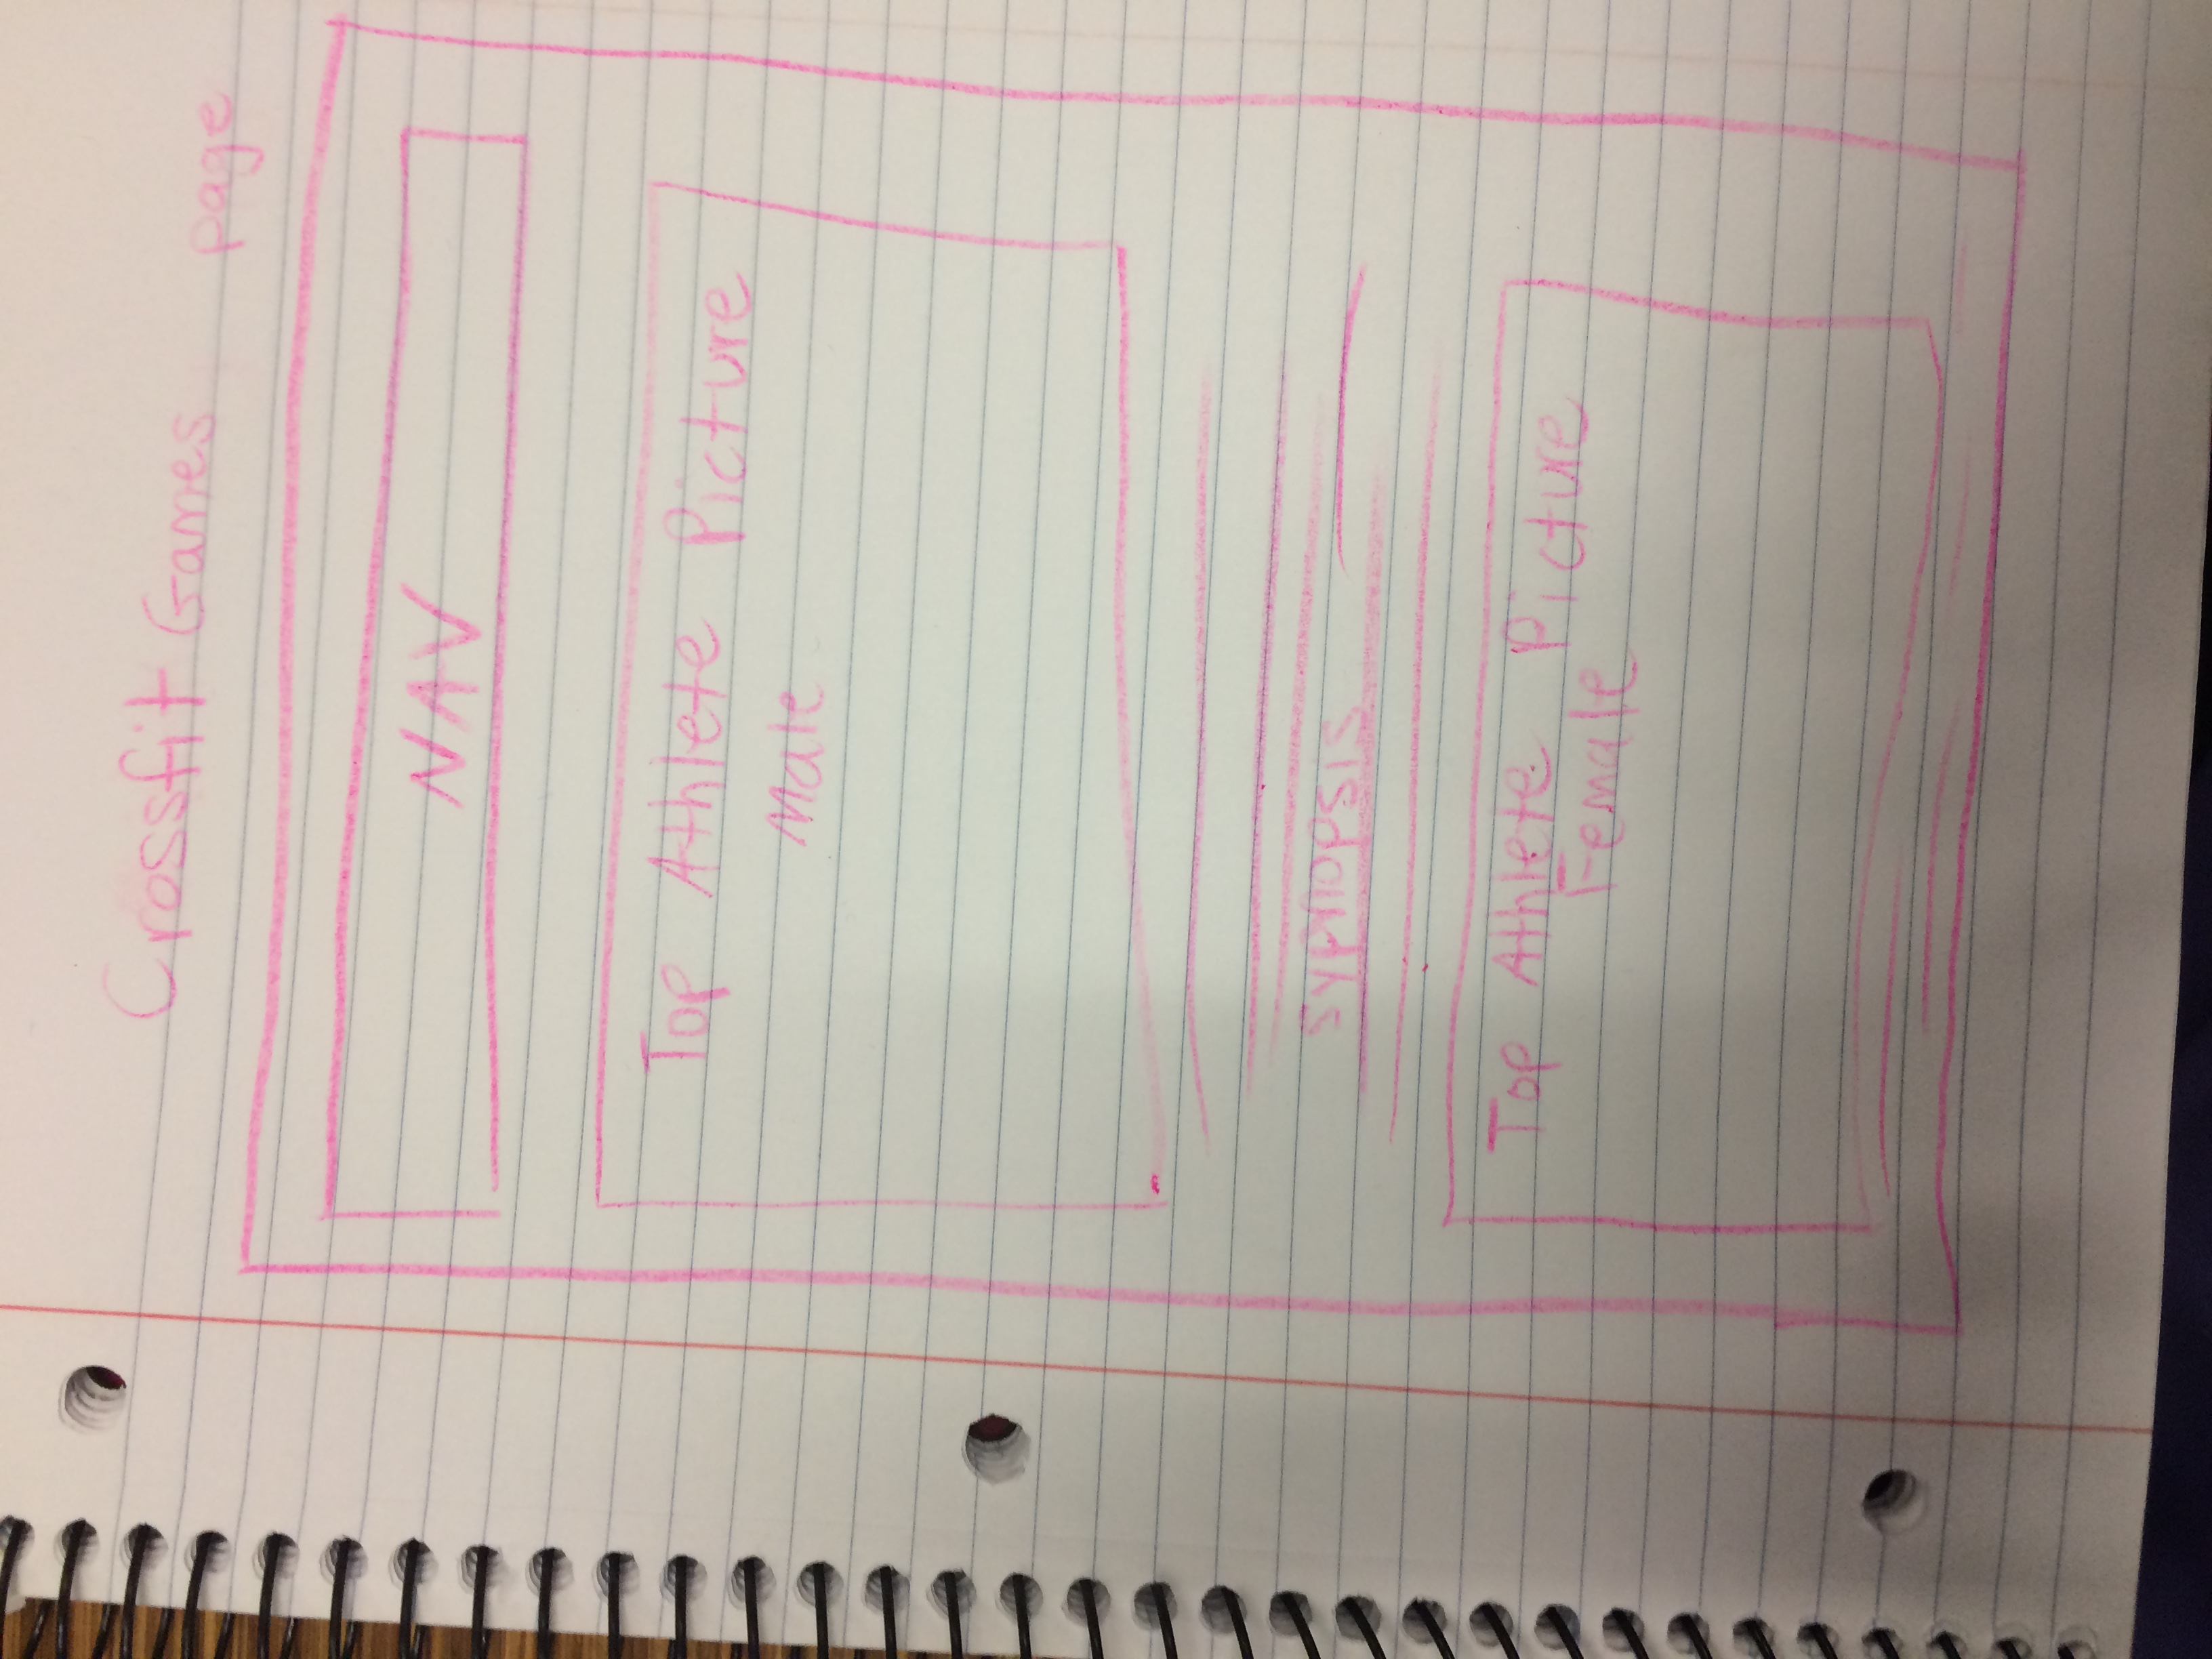 Crossfit Games page
NAV
Top Athlete Picture
Male
sypnopsis
Top Athlete Picture
Female